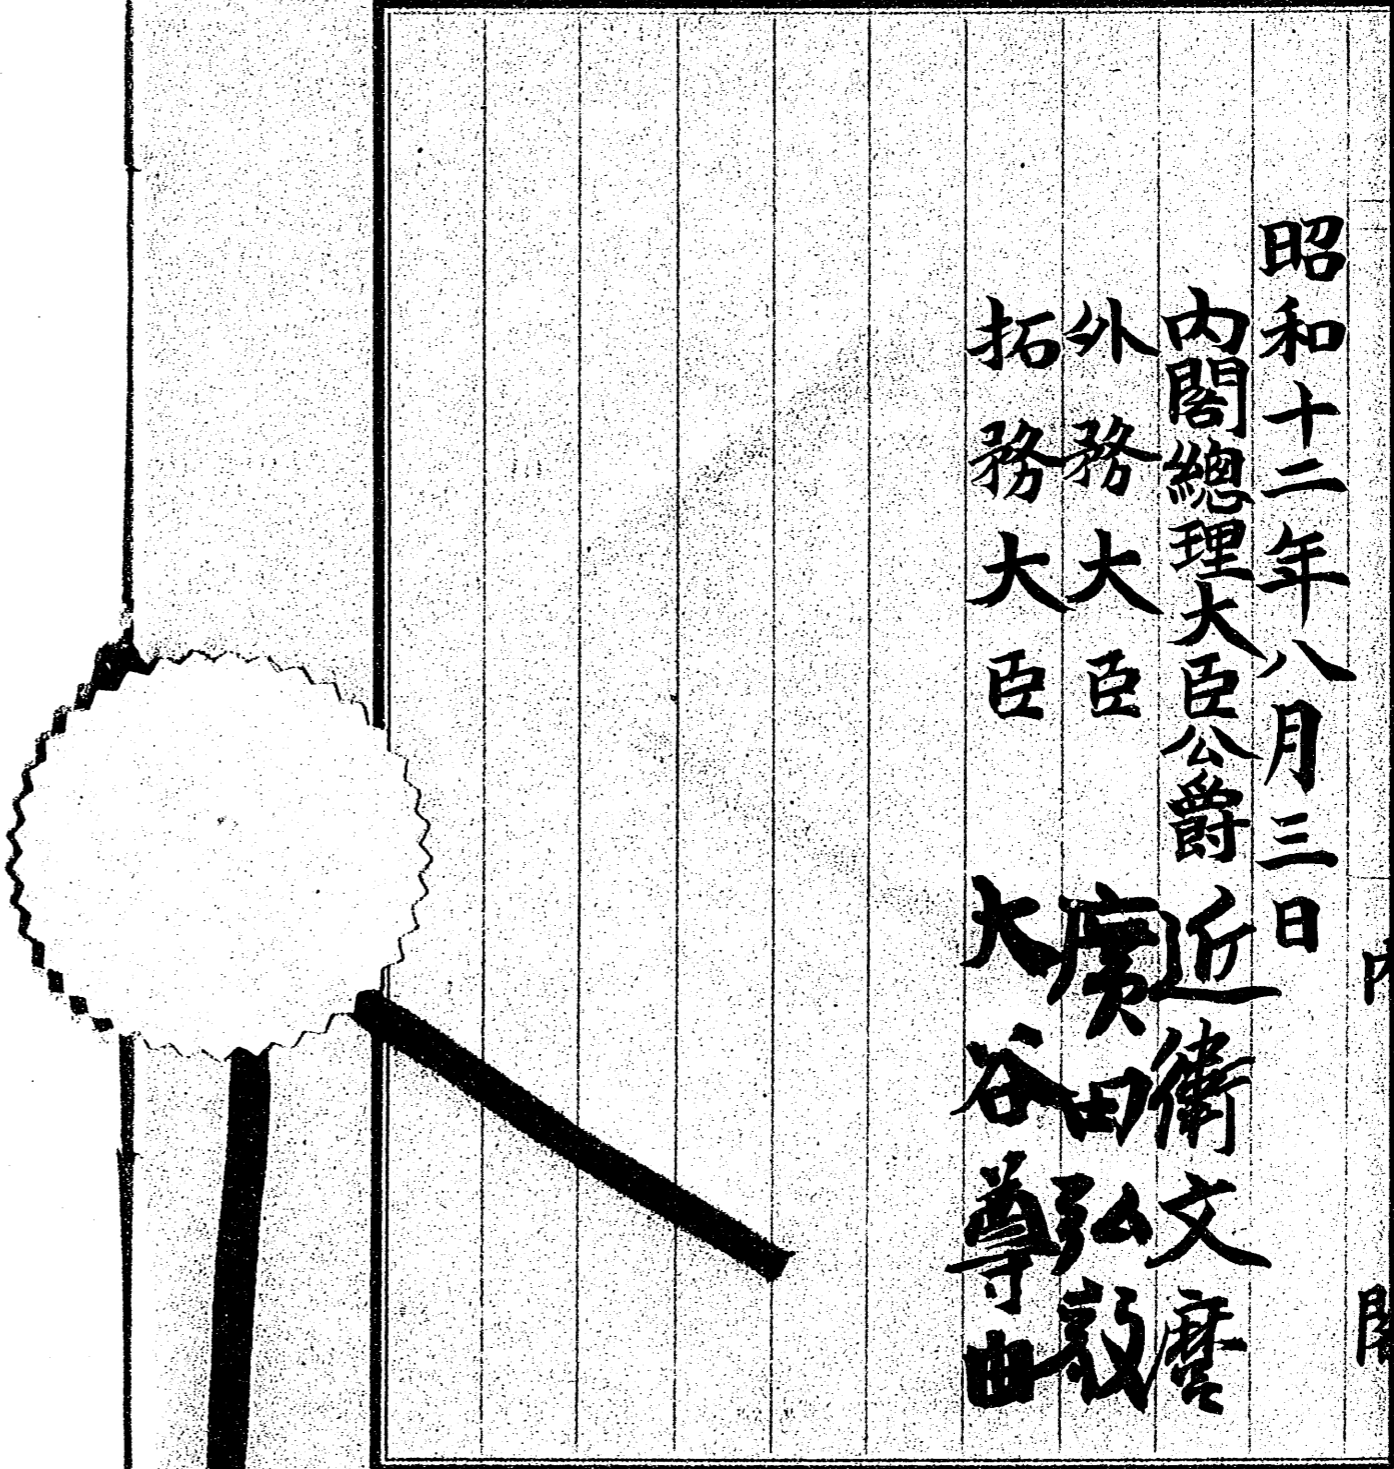 昭和十二年八月三日
內閣總理大臣公爵 近衛文麿
外務大臣 廣田弘毅
拓務大臣 大谷尊由